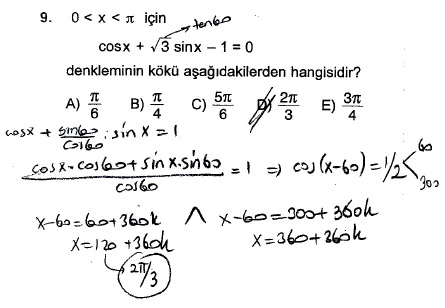 9. 0 < x < π için
→ tan60
cosx + √3 sinx − 1 = 0
denkleminin kökü aşağıdakilerden hangisidir?
A) π/6 B) π/4 C) 5π/6 D) 2π/3 E) 3π/4
cosx + sin60/cos60 . sin x = 1
(cosx . cos60 + sin x . sin60)/cos60 = 1 ⇒ cos(x-60) = 1/2 < 60 300
x-60=60+360k ∧ x-60=300+360k
x=120+360k x=360+360k
2π/3